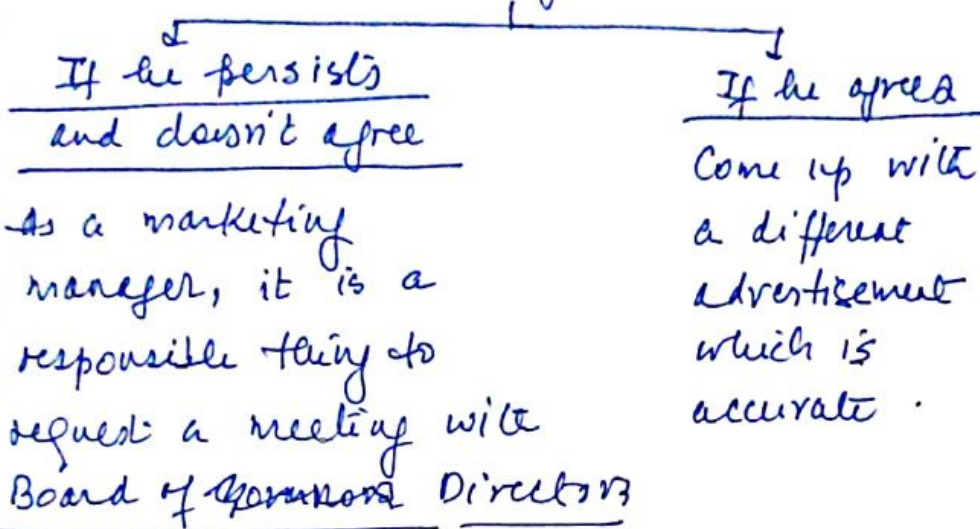 If he persists
and doesn't agree
As a marketing
manager, it is a
responsible thing to
request a meeting with
Board of Directors
If he agrees
Come up with
a different
advertisement
which is
accurate.